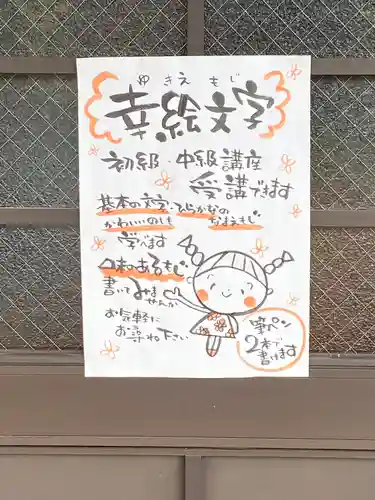 ゆきえもじ
幸絵文字
初級・中級講座
受講できます
基本の文字・ひらがなの
かわいいのしも なまえもじ
学べます
味のあるもじ
書いてみませんか
お気軽に
お尋ね下さい
筆ペン
2本で
書けます